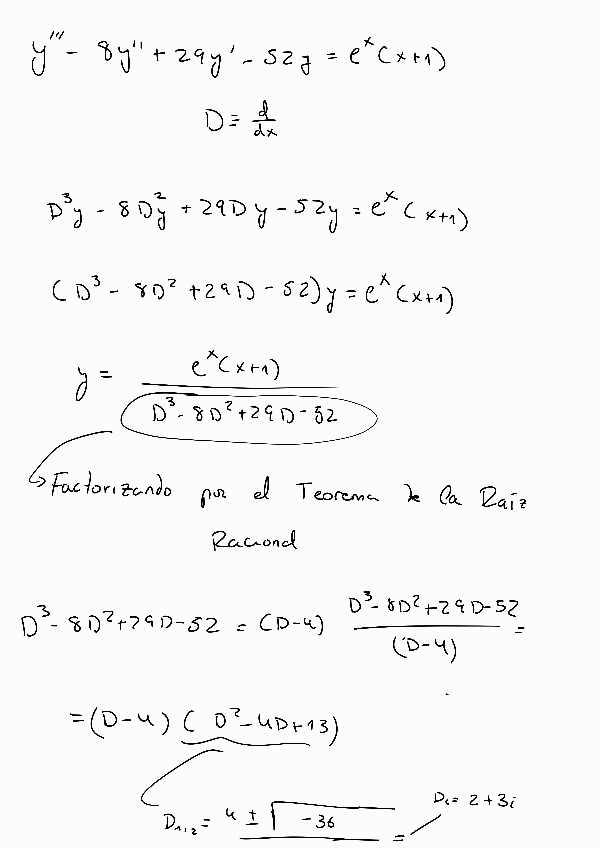 y''' - 8y'' + 29y' - 52y = e^x(x+1)
D = d/dx
D³y - 8D²y + 29Dy - 52y = e^x(x+1)
(D³ - 8D² + 29D - 52)y = e^x(x+1)
y = e^x(x+1) / D³ - 8D² + 29D - 52
Factorizando por el Teorema de la Raíz
Racional
D³ - 8D² + 29D - 52 = (D-4) D³ - 8D² + 29D - 52 / (D-4) =
= (D-4) (D² - 4D + 13)
D₁,₂ = 4 ± √-36 =
D₁ = 2 + 3i